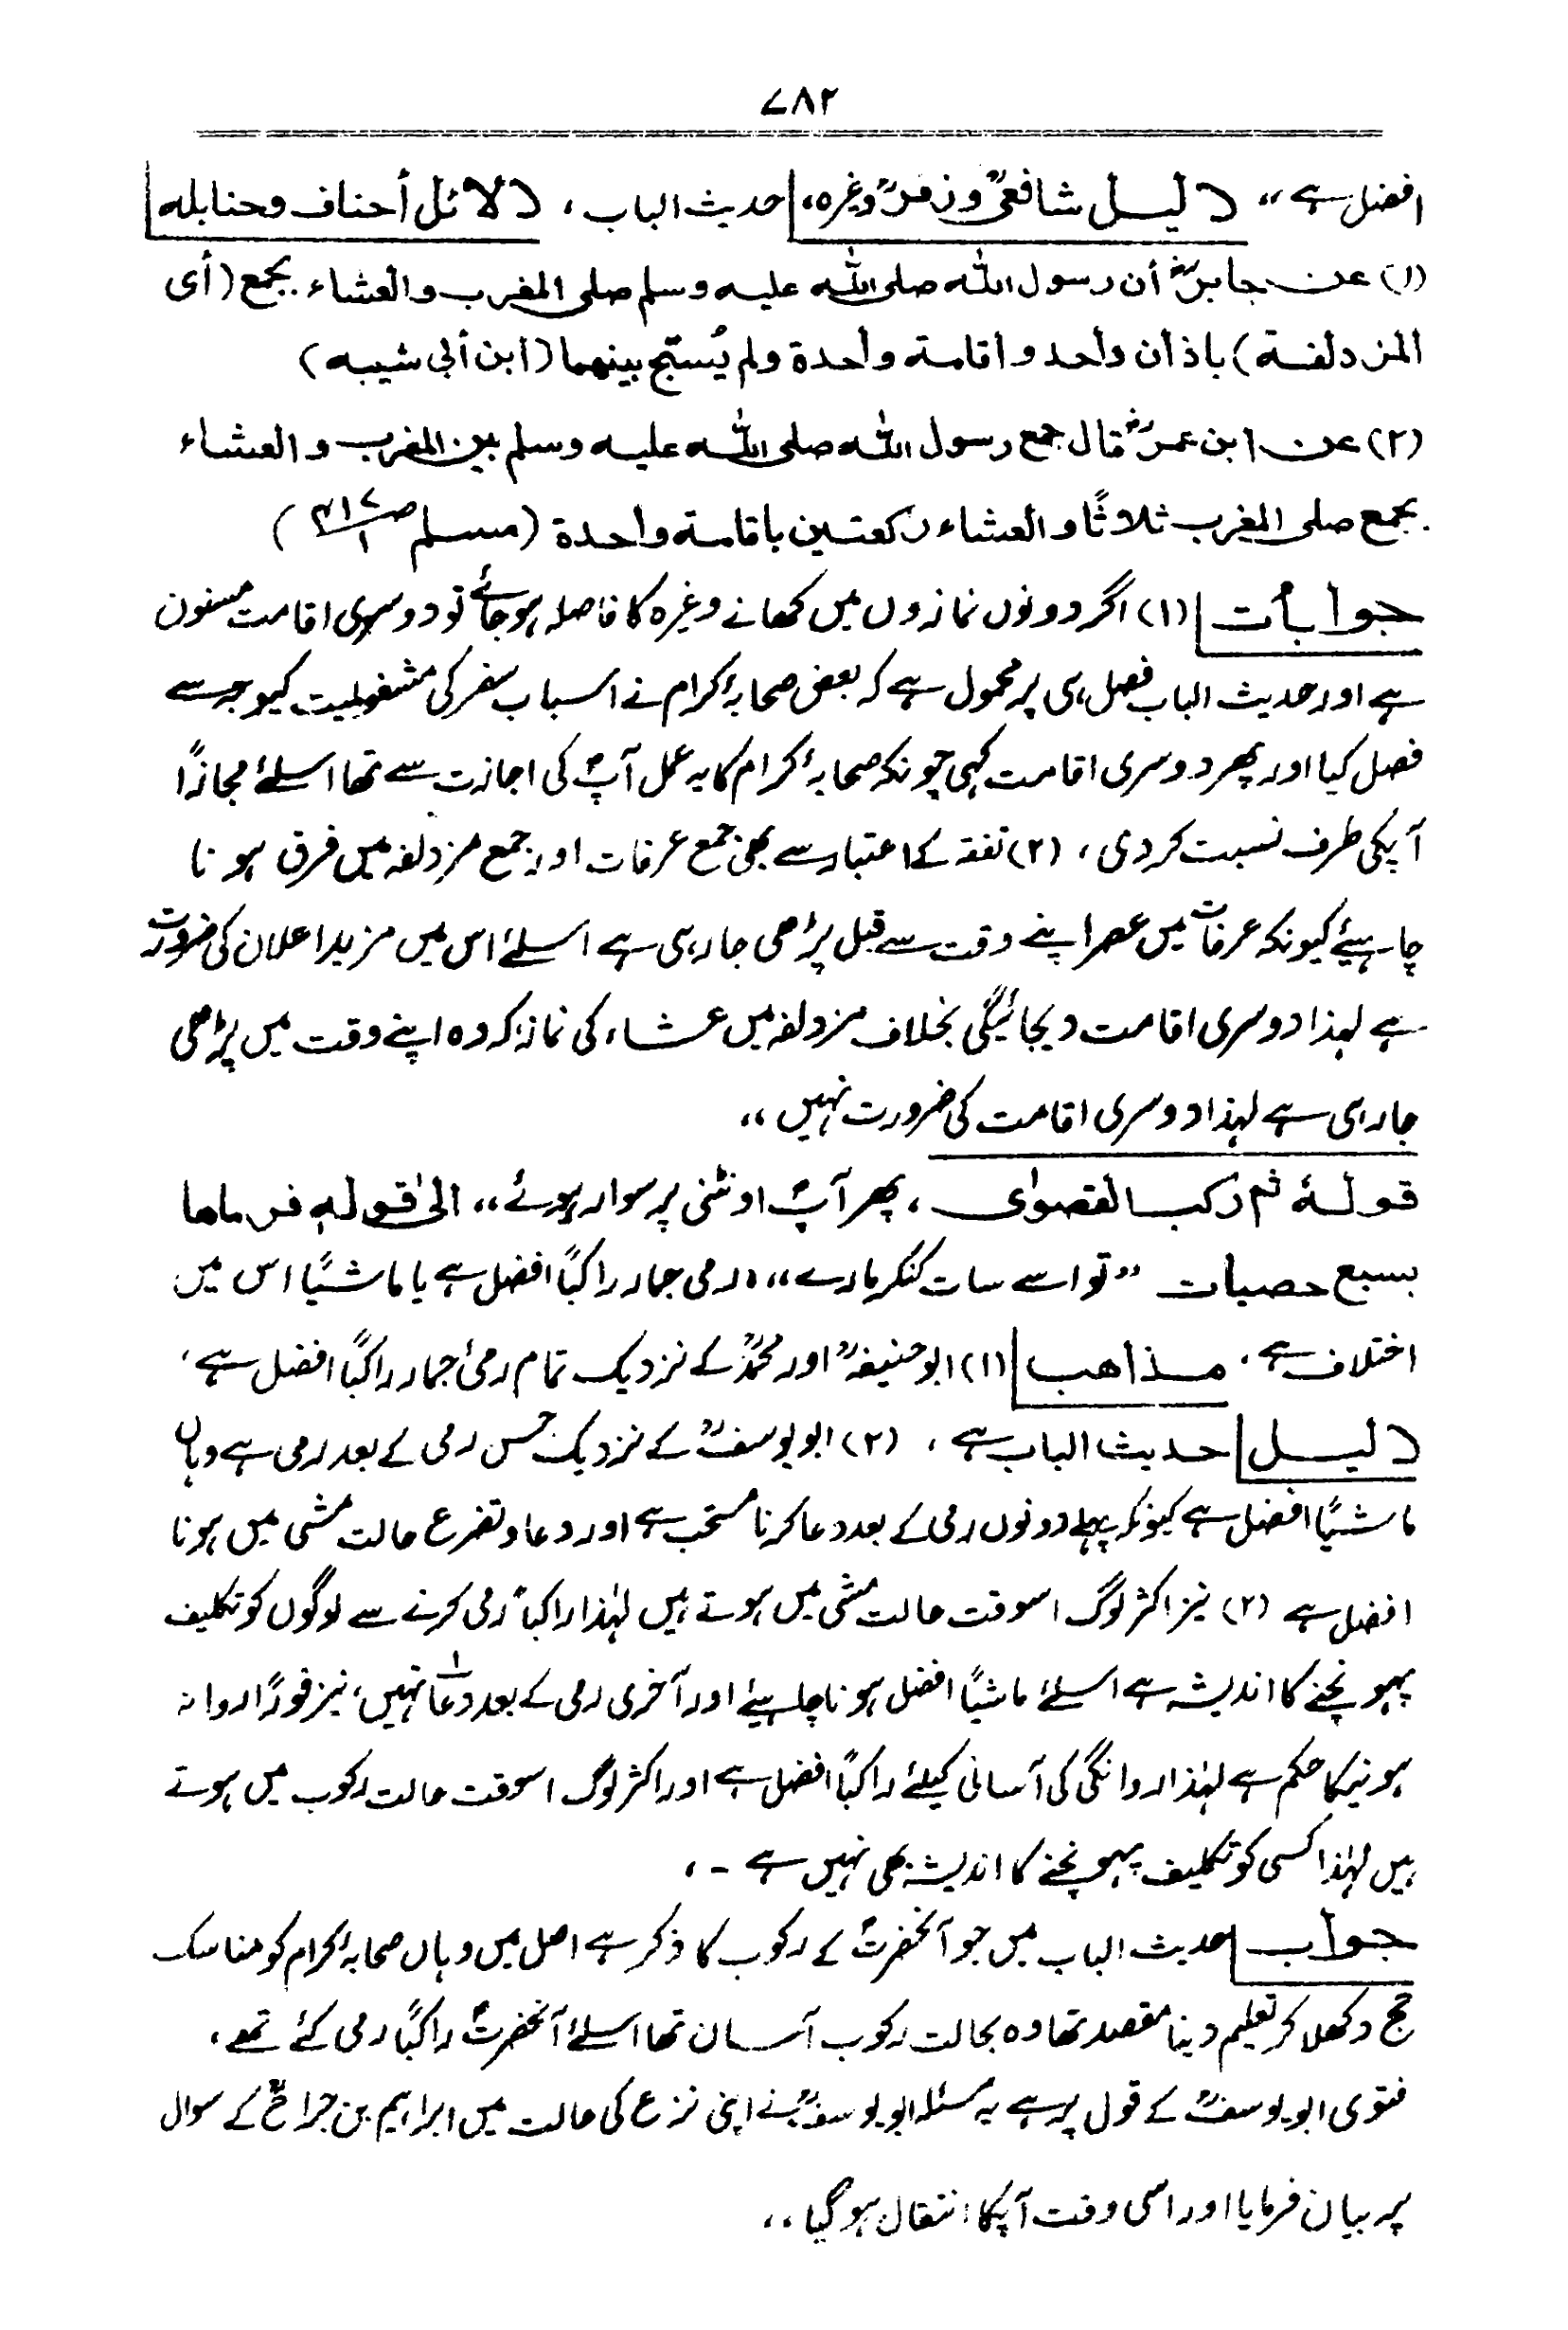 ۷۸۲
افضل ہے ،، دلیل شافعیؒ وزفرؒ وغیرہ، حدیث الباب ، دلائل أحناف وحنابلہ
(۱) عن جابرؓ أن رسول اللہ صلی اللہ علیہ وسلم صلی المغرب والعشاء بجمع (أی
المزدلفة) باذان واحد واقامة واحدة ولم یُسبّح بینهما (ابن أبی شیبه)
(۲) عن ابن عمرؓ قال جمع رسول اللہ صلی اللہ علیہ وسلم بین المغرب والعشاء
بجمع صلی المغرب ثلاثًا والعشاء رکعتین باقامة واحدة (مسلم ص۴۱۷/۱)
جوابات (۱) اگر دونوں نمازوں میں کھانے وغیرہ کا فاصلہ ہوجائے تو دوسری اقامت مسنون
ہے اور حدیث الباب فصل ہی پر محمول ہے کہ بعض صحابۂ کرام نے اسباب سفر کی مشغولیت کیوجہ سے
فصل کیا اور پھر دوسری اقامت کہی چونکہ صحابۂ کرام کا یہ عمل آپؐ کی اجازت سے تھا اسلئے مجازًا
آپکی طرف نسبت کردی ، (۲) تفقہ کے اعتبار سے بھی جمع عرفات اور جمع مزدلفہ میں فرق ہونا
چاہیئے کیونکہ عرفات میں عصر اپنے وقت سے قبل پڑھی جارہی ہے اسلئے اس میں مزید اعلان کی ضرورت
ہے لہذا دوسری اقامت دیجائیگی بخلاف مزدلفہ میں عشاء کی نماز کہ وہ اپنے وقت میں پڑھی
جارہی ہے لہذا دوسری اقامت کی ضرورت نہیں ،،
قولهٗ ثم رکب القصوٰی ، پھر آپؐ اونٹنی پر سوار ہوئے ،، الیٰ قوله فرماها
بسبع حصیات ” تو اسے سات کنکر مارے ،، رمی جمار راکبًا افضل ہے یا ماشیًا اس میں
اختلاف ہے ، مذاهب (۱) ابوحنیفہؒ اور محمدؒ کے نزدیک تمام رمئ جمار راکبًا افضل ہے ،
دلیل حدیث الباب ہے ، (۲) ابویوسفؒ کے نزدیک جس رمی کے بعد رمی ہے وہاں
ماشیًا افضل ہے کیونکہ پہلے دونوں رمی کے بعد دعا کرنا مستحب ہے اور دعا و تضرع حالت مشی میں ہونا
افضل ہے (۲) نیز اکثر لوگ اسوقت حالت مشی میں ہوتے ہیں لہٰذا راکبًا رمی کرنے سے لوگوں کو تکلیف
پہونچنے کا اندیشہ ہے اسلئے ماشیًا افضل ہونا چاہیئے اور آخری رمی کے بعد دعا نہیں ، نیز فورًا روانہ
ہونیکا حکم ہے لہٰذا روانگی کی آسانی کیلئے راکبًا افضل ہے اور اکثر لوگ اسوقت حالت رکوب میں ہوتے
ہیں لہٰذا کسی کو تکلیف پہونچنے کا اندیشہ بھی نہیں ہے ۔،
جواب حدیث الباب میں جو آنحضرتؐ کے رکوب کا ذکر ہے اصل میں وہاں صحابۂ کرام کو مناسک
حج دکھلا کر تعلیم دینا مقصد تھا وہ بحالت رکوب آسان تھا اسلئے آنحضرتؐ راکبًا رمی کئے تھے ،
فتوی ابویوسفؒ کے قول پر ہے یہ مسئلہ ابویوسفؒ نے اپنی نزع کی حالت میں ابراہیم بن جراحؒ کے سوال
پر بیان فرمایا اور اسی وقت آپکا انتقال ہوگیا ،،